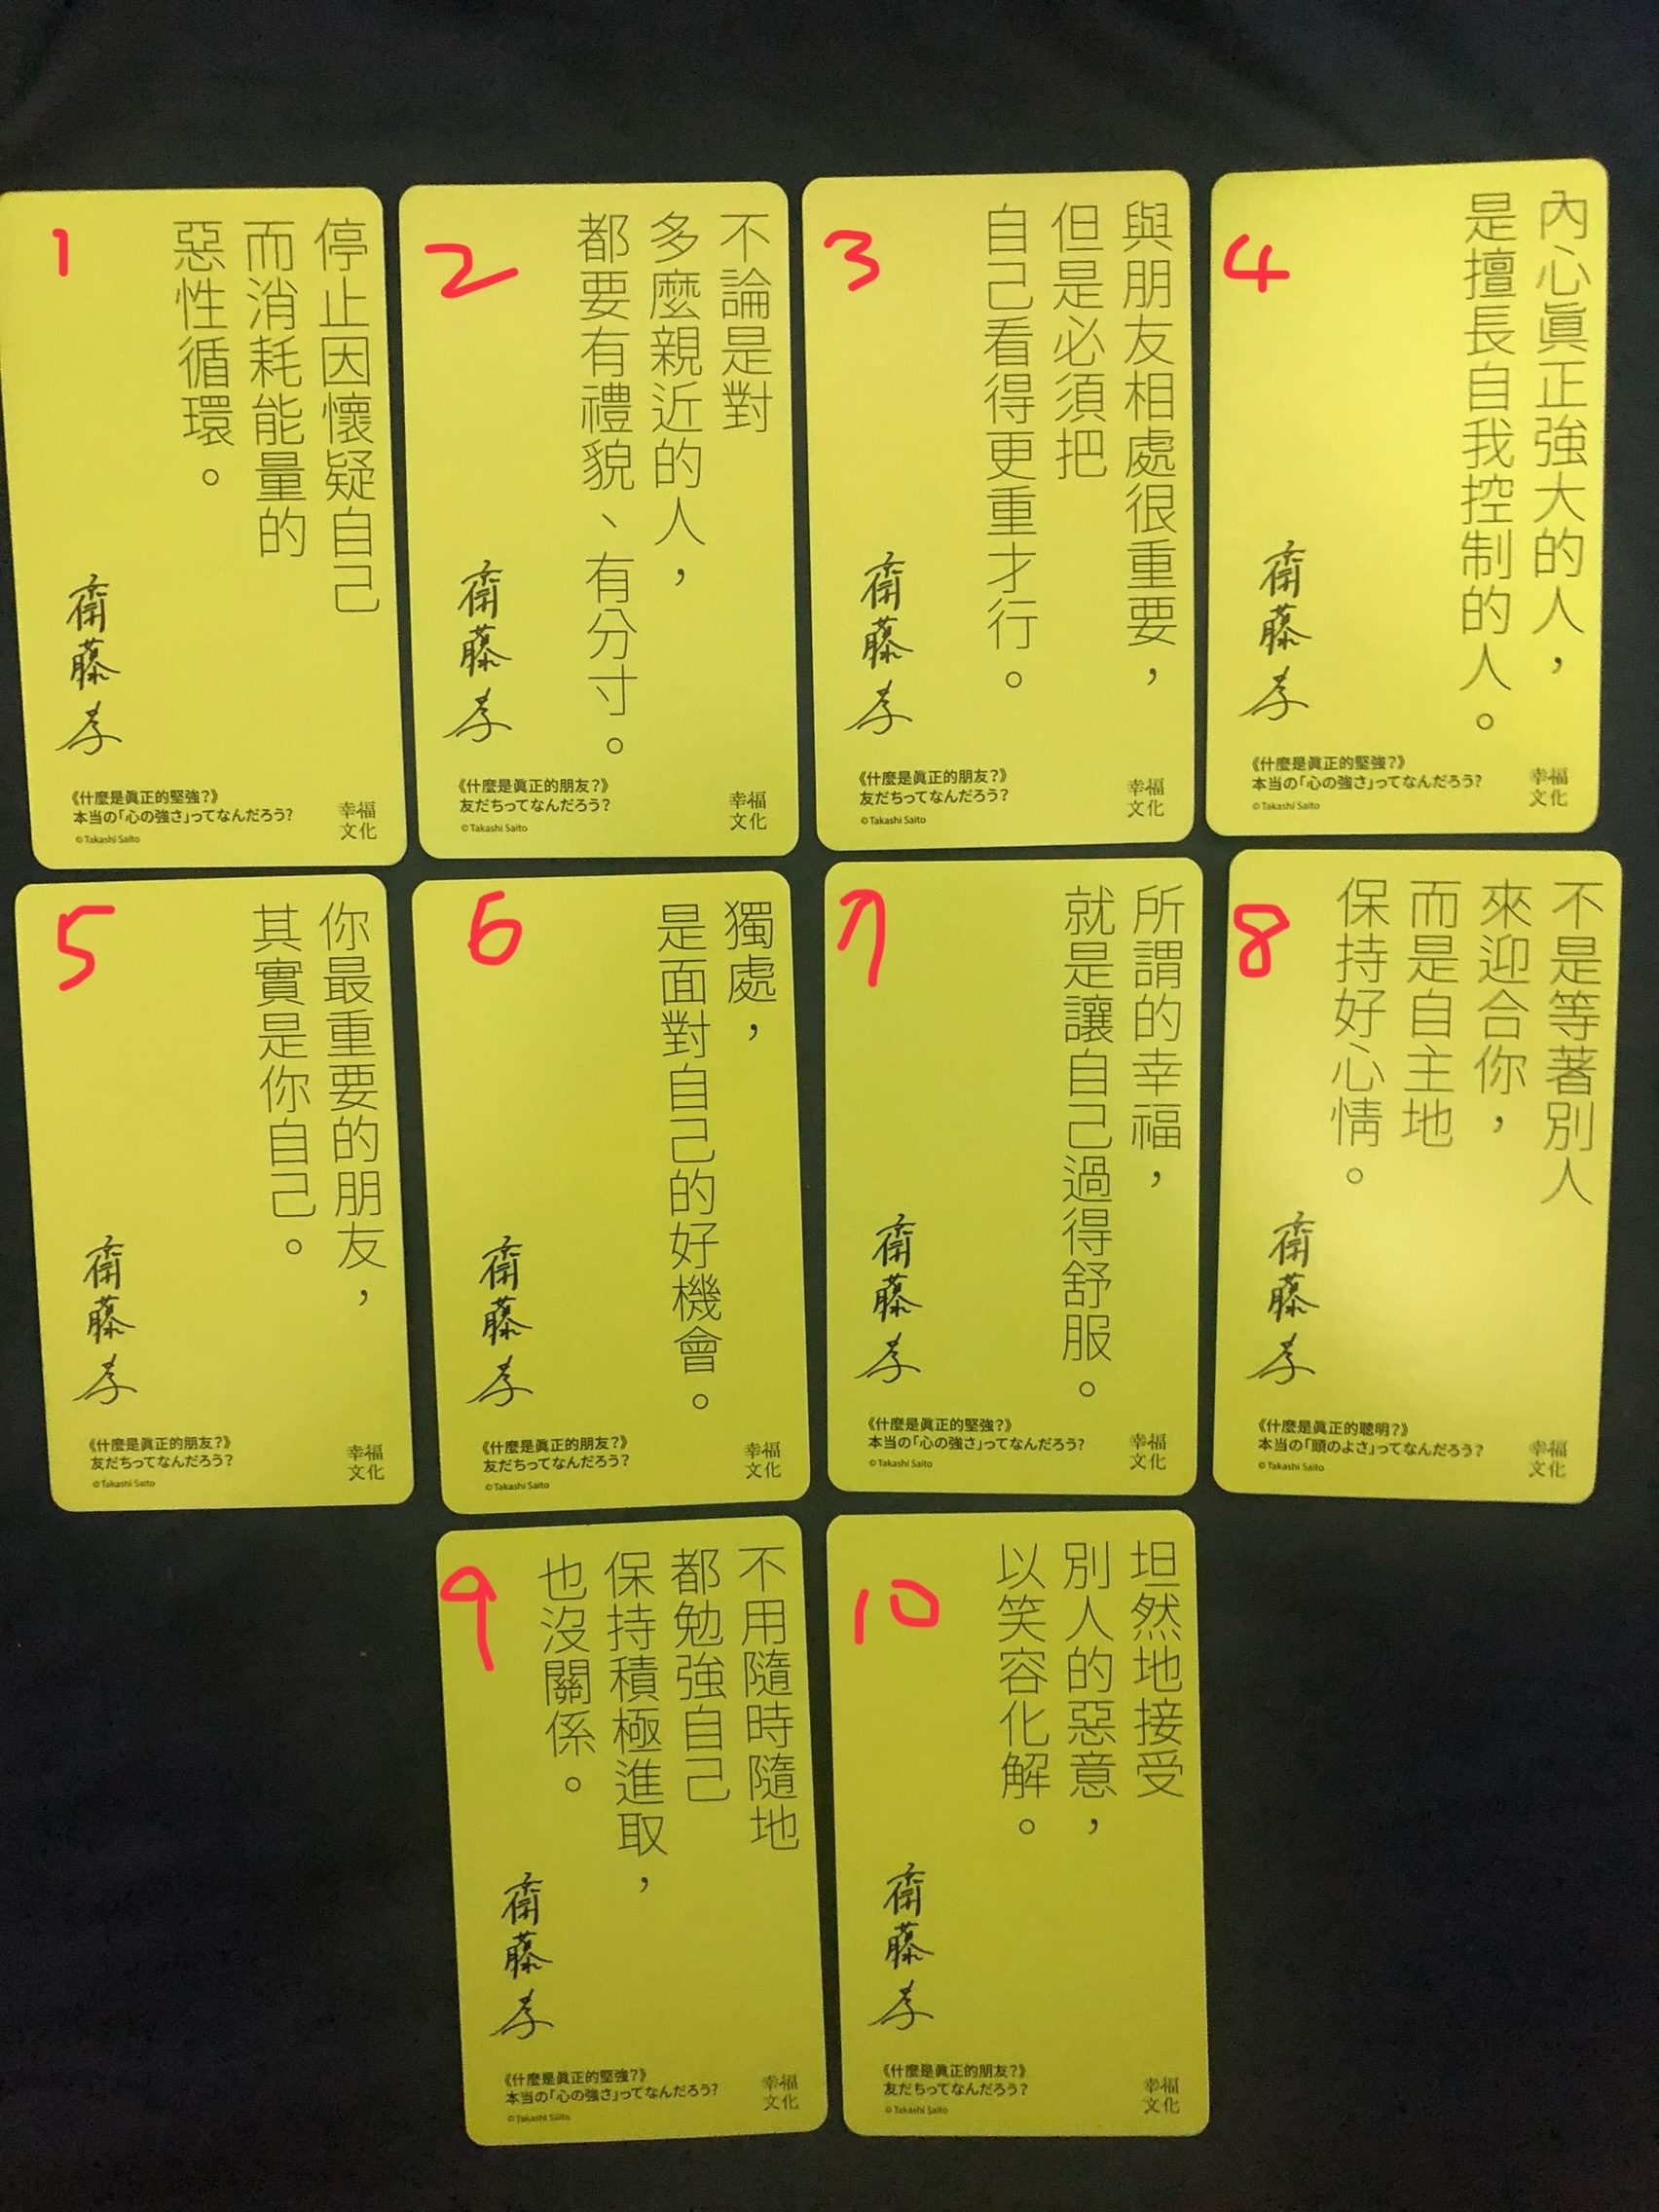 1
停止因懷疑自己
而消耗能量的
惡性循環。
齋藤孝
《什麼是眞正的堅強?》
本当の「心の強さ」ってなんだろう?
© Takashi Saito
幸福
文化
2
不論是對
多麼親近的人,
都要有禮貌、有分寸。
齋藤孝
《什麼是眞正的朋友?》
友だちってなんだろう?
© Takashi Saito
幸福
文化
3
與朋友相處很重要,
但是必須把
自己看得更重才行。
齋藤孝
《什麼是眞正的朋友?》
友だちってなんだろう?
© Takashi Saito
幸福
文化
4
內心眞正強大的人,
是擅長自我控制的人。
齋藤孝
《什麼是眞正的堅強?》
本当の「心の強さ」ってなんだろう?
© Takashi Saito
幸福
文化
5
你最重要的朋友,
其實是你自己。
齋藤孝
《什麼是眞正的朋友?》
友だちってなんだろう?
© Takashi Saito
幸福
文化
6
獨處,
是面對自己的好機會。
齋藤孝
《什麼是眞正的朋友?》
友だちってなんだろう?
© Takashi Saito
幸福
文化
7
所謂的幸福,
就是讓自己過得舒服。
齋藤孝
《什麼是眞正的堅強?》
本当の「心の強さ」ってなんだろう?
© Takashi Saito
幸福
文化
8
不是等著別人
來迎合你,
而是自主地
保持好心情。
齋藤孝
《什麼是眞正的聰明?》
本当の「頭のよさ」ってなんだろう?
© Takashi Saito
幸福
文化
9
不用隨時隨地
都勉強自己
保持積極進取,
也沒關係。
齋藤孝
《什麼是眞正的堅強?》
本当の「心の強さ」ってなんだろう?
© Takashi Saito
幸福
文化
10
坦然地接受
別人的惡意,
以笑容化解。
齋藤孝
《什麼是眞正的朋友?》
友だちってなんだろう?
© Takashi Saito
幸福
文化